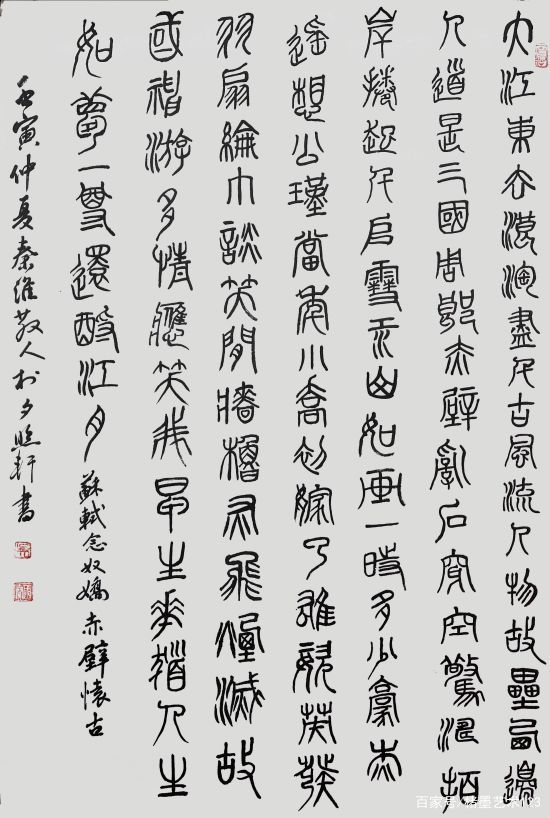 大江東去浪淘盡千古風流人物故壘西邊
人道是三國周郎赤壁亂石穿空驚濤拍
岸捲起千堆雪江山如畫一時多少豪杰
遙想公瑾當年小喬初嫁了雄姿英發
羽扇綸巾談笑間檣櫓灰飛煙滅故
國神游多情應笑我早生華髮人生
如夢一尊還酹江月 蘇軾念奴嬌赤壁懷古
壬寅仲夏秦維散人於夕照軒書
百家号